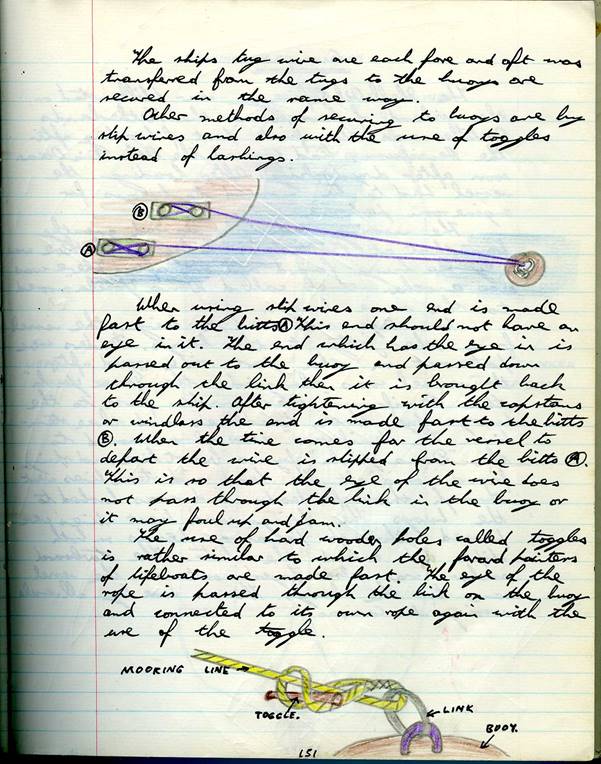 The ships tug wire are each fore and aft was
transferred from the tugs to the buoys are
secured in the same way.
Other methods of securing to buoys are by
slip wires and also with the use of toggles
instead of lashings.
B
A
When using slip wires one end is made
fast to the bitts A This end should not have an
eye in it. The end which has the eye in is
passed out to the buoy and passed down
through the link then it is brought back
to the ship. After tightening with the capstans
or windlass the end is made fast to the bitts
B. When the time comes for the vessel to
depart the wire is slipped from the bitts A.
This is so that the eye of the wire does
not pass through the link in the buoy or
it may foul up and jam.
The use of hard wooden poles called toggles
is rather similar to which the forard painters
of lifeboats are made fast. The eye of the
rope is passed through the link on the buoy
and connected to its own rope again with the
use of the toggle.
MOORING LINE
TOGGLE.
LINK
BUOY.
151